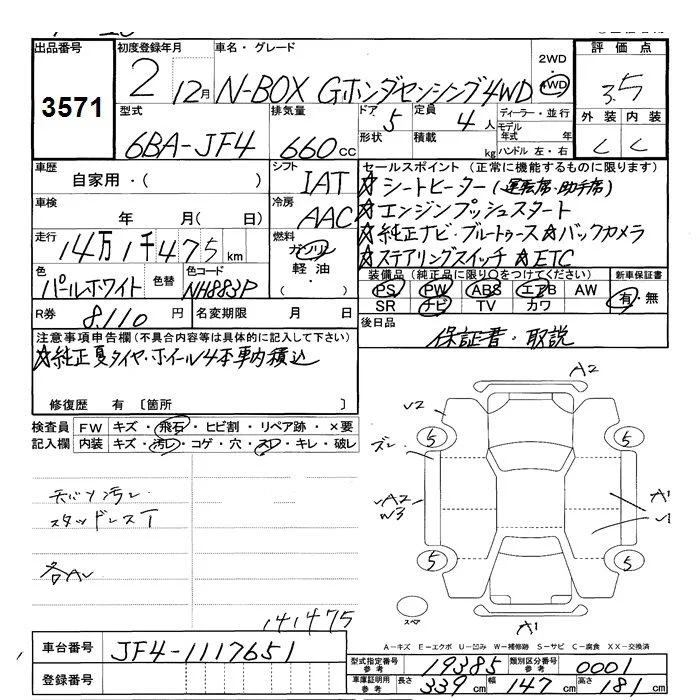 出品番号
3571
初度登録年月
2 12月
車名・グレード
N-BOX GホンダセンシングFWD
2WD
4WD
評価点
3.5
外装 内装
C C
型式
6BA-JF4
排気量
660cc
ドア 5
形状
定員 4人
積載 kg
ディーラー・並行
モデル年式 年
ハンドル 左・右
車歴
自家用・( )
シフト
IAT
車検
年 月( 日)
冷房
AAC
走行
14万1千475km
燃料
ガソリン
軽油
・( )
色
パールホワイト
色替
色コード
NH883P
R券 8,110円
名変期限 月 日
セールスポイント(正常に機能するものに限ります)
☆シートヒーター(運転席・助手席)
☆エンジンプッシュスタート
☆純正ナビ・ブルートゥース☆バックカメラ
☆ステアリングスイッチ ☆ETC
装備品(純正品に限り○をつけてください)
PS PW ABS エアB AW
SR ナビ TV カワ
新車保証書
有・無
後日品
保証書・取説
注意事項申告欄(不具合内容等は具体的に記入して下さい)
☆純正夏タイヤ・ホイール4本車内積込
修復歴 有〔箇所 〕
検査員記入欄
FW キズ・飛石・ヒビ割・リペア跡・×要
内装 キズ・汚レ・コゲ・穴・スレ・キレ・破レ
スタッドレス
141475
A2
√2
5
5
ズレ
√A2
W3
A1
5
5
スペア
A1
A-キズ E-エクボ U-凹み W-補修跡 S-サビ C-腐食 XX-交換済
車台番号 JF4-1117651
登録番号
型式指定番号 参考 19385
類別区分番号 参考 0001
車庫証明用 参考 長さ 339cm 幅 147cm 高さ 181cm